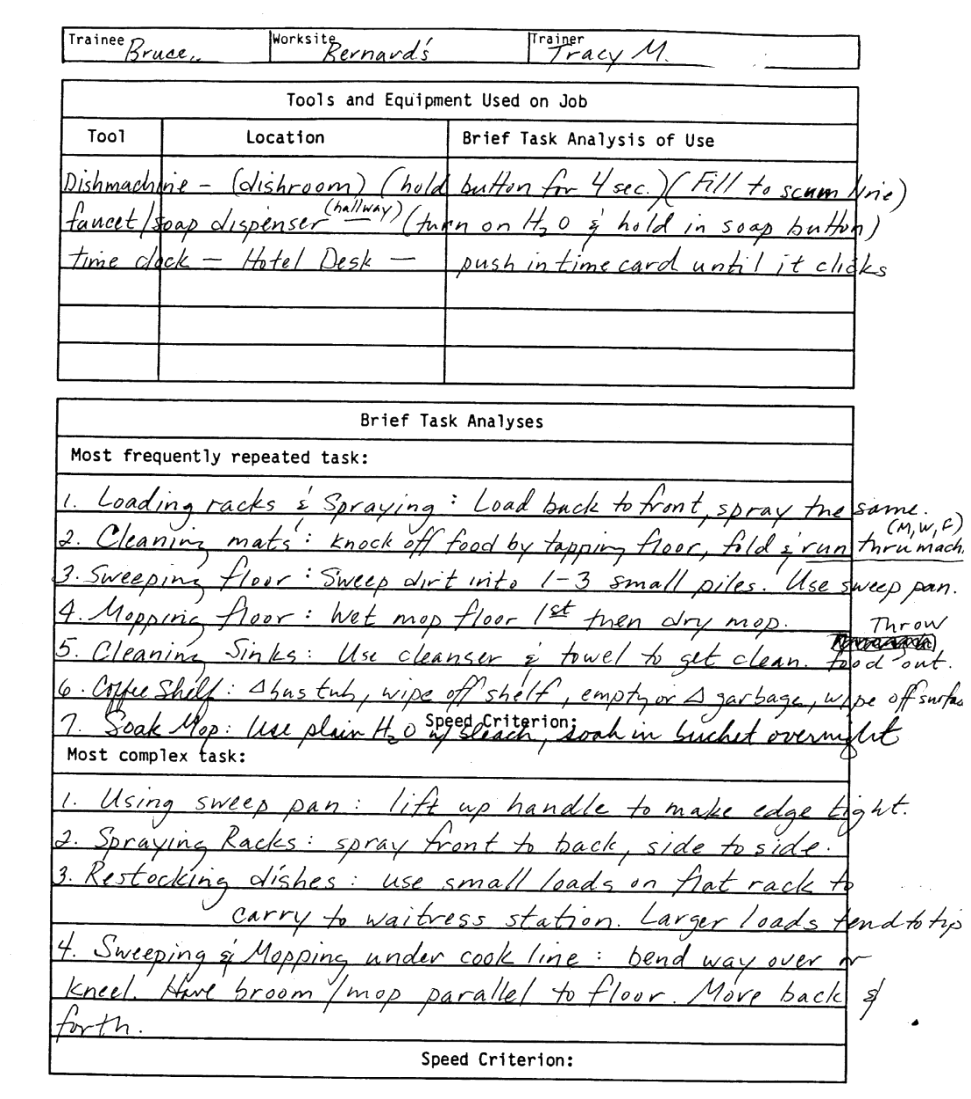 Trainee Bruce Worksite Bernard's Trainer Tracy M.
Tools and Equipment Used on Job
Tool Location Brief Task Analysis of Use
Dishmachine – (dishroom) (hold button for 4 sec.) (Fill to scum line)
faucet/soap dispenser (hallway) (turn on H2O & hold in soap button)
time clock – Hotel Desk – push in time card until it clicks
Brief Task Analyses
Most frequently repeated task:
1. Loading racks & Spraying: Load back to front, spray the same.
2. Cleaning mats: knock off food by tapping floor, fold & run thru mach (M, W, F)
3. Sweeping floor: Sweep dirt into 1-3 small piles. Use sweep pan.
4. Mopping floor: Wet mop floor 1st then dry mop.
5. Cleaning Sinks: Use cleanser & towel to get clean. Throw food out.
6. Coffee Shelf: Δ bus tub, wipe off shelf, empty or Δ garbage, wipe off surfac
7. Soak Mop: Use plain H2O w/ bleach, soak in bucket overnight
Speed Criterion:
Most complex task:
1. Using sweep pan: lift up handle to make edge tight.
2. Spraying Racks: spray front to back, side to side.
3. Restocking dishes: use small loads on flat rack to
carry to waitress station. Larger loads tend to tip
4. Sweeping & Mopping under cook line: bend way over or
kneel. Have broom/mop parallel to floor. Move back &
forth.
Speed Criterion: